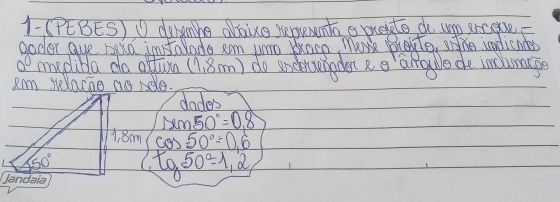 1-(PEBES) O desenho abaixo representa o projeto de um escorre-
gador que será instalado em uma praça. Nesse projeto, estão indicados
a medida da altura (1,8m) do escorregador e o ângulo de inclinação
em relação ao solo.
dados
sen50°=0,8
1,8m
cos50°=0,6
50°
tg50°=1,2
Jandaia